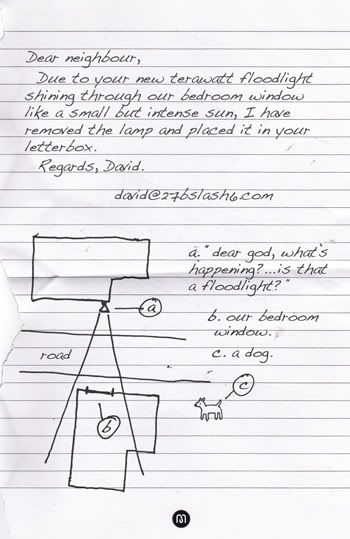 Dear neighbour,
Due to your new terawatt floodlight
shining through our bedroom window
like a small but intense sun, I have
removed the lamp and placed it in your
letterbox.
Regards, David.
david@27bslash6.com
a. "dear god, what's
happening?...is that
a floodlight?"
b. our bedroom
window.
c. a dog.
a
road
c
b